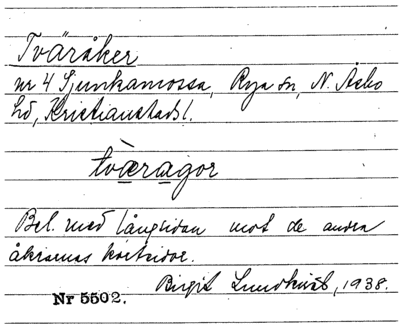 Tväråker
nr 4 Sjunkamossa, Rya sn, N. Åsbo
hd, Kristianstads l.
tværagor
Bel. med långsidan mot de andra
åkrarnas kortsidor.
Birgit Lundkvist, 1938.
Nr 5502.